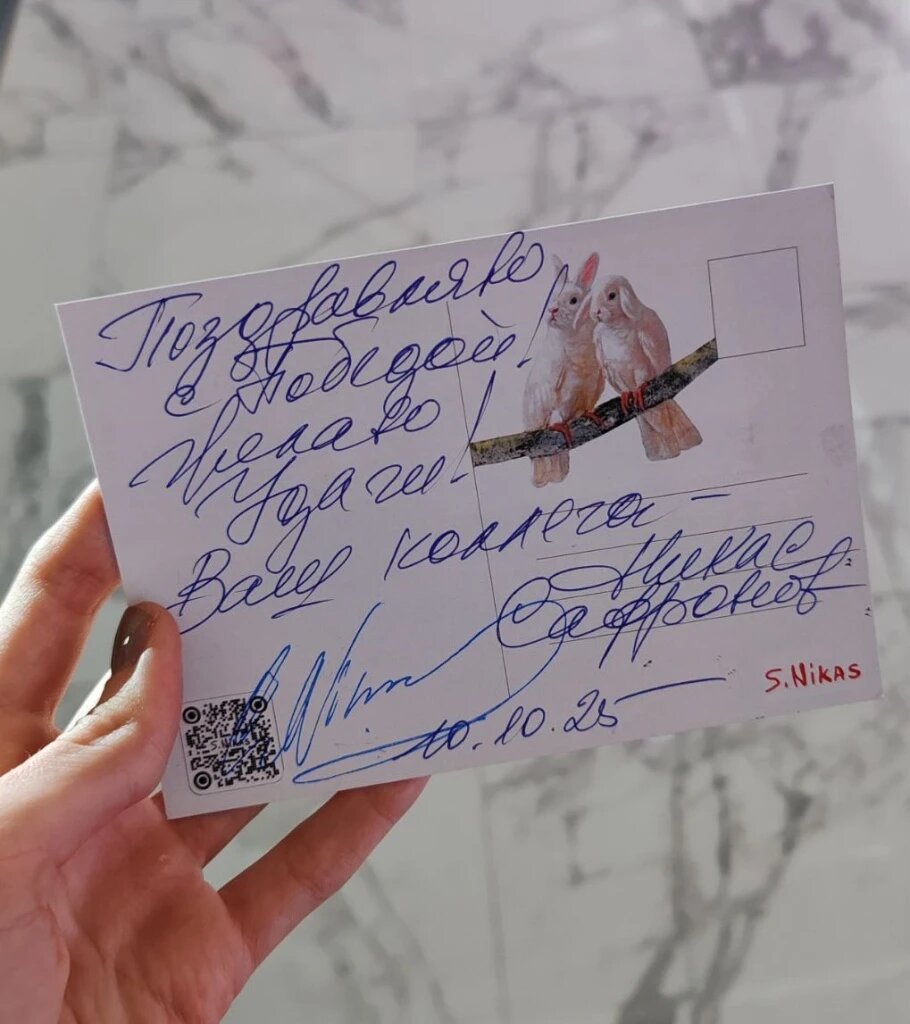 Поздравляю
с Победой!
Желаю
Удачи!
Ваш коллега –
Никас
Сафронов
10.10.25
S.NIKAS
S.NIKAS